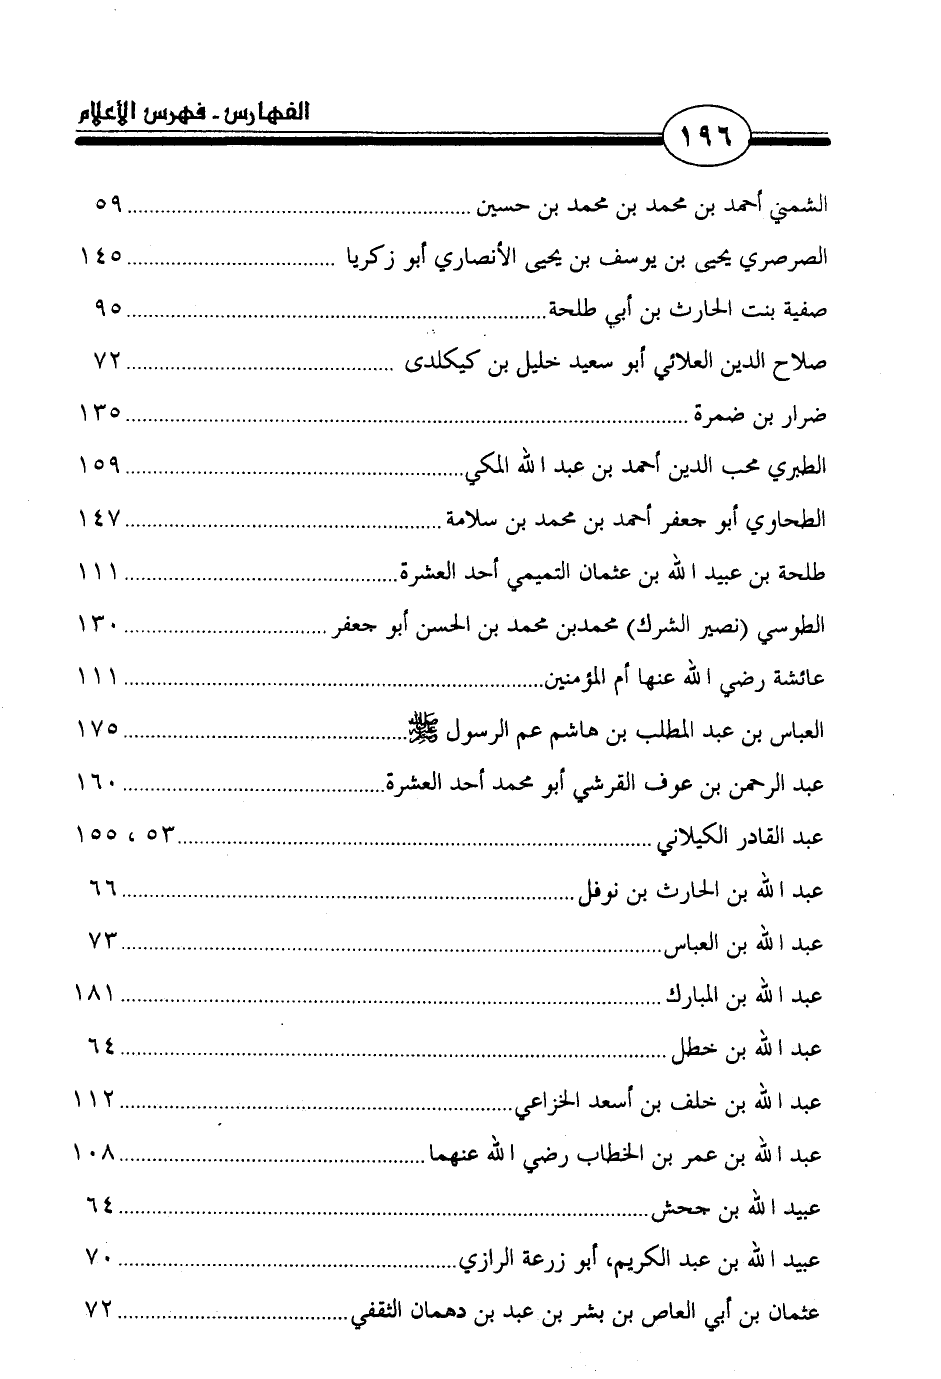 الفهارس - فهرس الأعلام
١٩٦
الشمني أحمد بن محمد بن محمد بن حسين ..... ٥٩
الصرصري يحيى بن يوسف بن يحيى الأنصاري أبو زكريا ..... ١٤٥
صفية بنت الحارث بن أبي طلحة ..... ٩٥
صلاح الدين العلائي أبو سعيد خليل بن كيكلدى ..... ٧٢
ضرار بن ضمرة ..... ١٣٥
الطبري محب الدين أحمد بن عبد الله المكي ..... ١٥٩
الطحاوي أبو جعفر أحمد بن محمد بن سلامة ..... ١٤٧
طلحة بن عبيد الله بن عثمان التميمي أحد العشرة ..... ١١١
الطوسي (نصير الشرك) محمدبن محمد بن الحسن أبو جعفر ..... ١٣٠
عائشة رضي الله عنها أم المؤمنين ..... ١١١
العباس بن عبد المطلب بن هاشم عم الرسول ﷺ ..... ١٧٥
عبد الرحمن بن عوف القرشي أبو محمد أحد العشرة ..... ١٦٠
عبد القادر الكيلاني ..... ٥٣ ، ١٥٥
عبد الله بن الحارث بن نوفل ..... ٦٦
عبد الله بن العباس ..... ٧٣
عبد الله بن المبارك ..... ١٨١
عبد الله بن خطل ..... ٦٤
عبد الله بن خلف بن أسعد الخزاعي ..... ١١٢
عبد الله بن عمر بن الخطاب رضي الله عنهما ..... ١٠٨
عبيد الله بن جحش ..... ٦٤
عبيد الله بن عبد الكريم، أبو زرعة الرازي ..... ٧٠
عثمان بن أبي العاص بن بشر بن عبد بن دهمان الثقفي ..... ٧٢